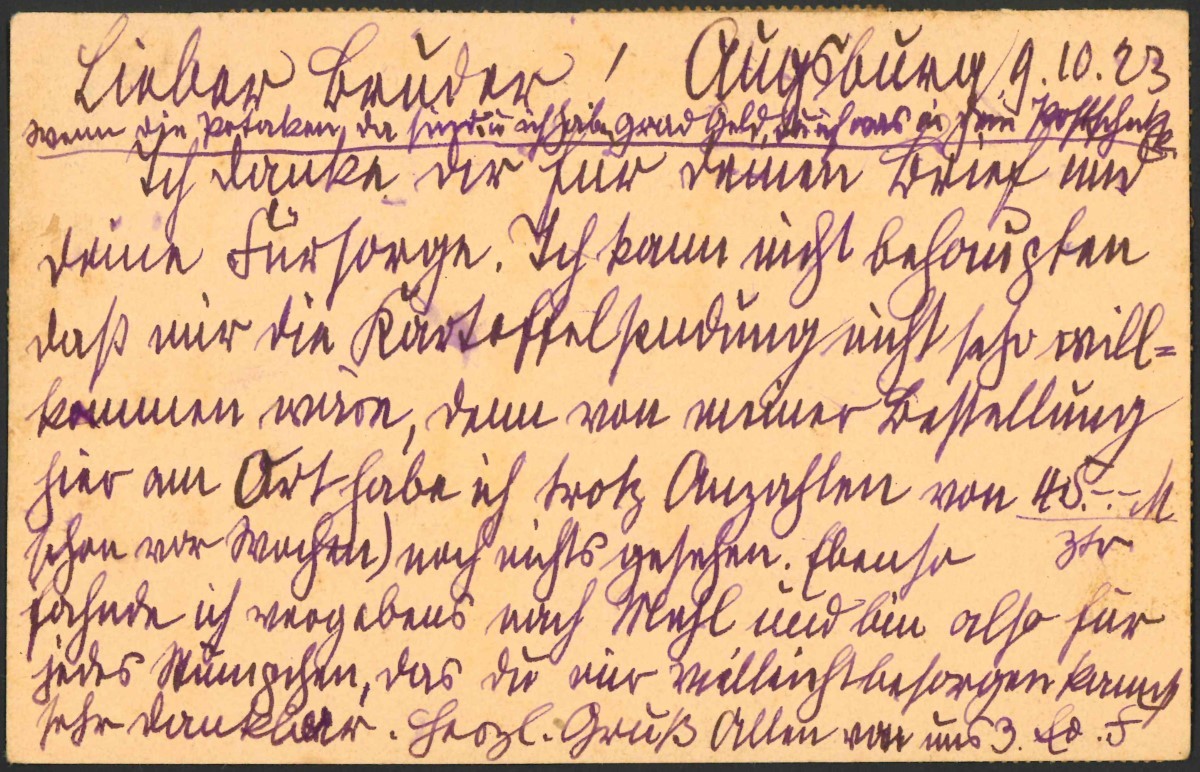 Lieber Bruder! Augsburg 9.10.23
wenn die Petaken da sind u ich hab grad Geld, tu ich was in den Postscheck
Ich danke dir für deinen Brief und
deine Fürsorge. Ich kann nicht behaupten
daß mir die Kartoffelsendung nicht sehr will=
kommen wäre, denn von meiner Bestellung
hier am Ort habe ich trotz Anzahlen von 45.-- M
schon vor Wochen) noch nichts gesehen. Ebenso Ztr
fahnde ich vergebens nach Mehl und bin also für
jedes Stümpchen, das du mir vielleicht besorgen kannst
sehr dankbar. Herzl. Gruß Allen von uns 3. Ed. F